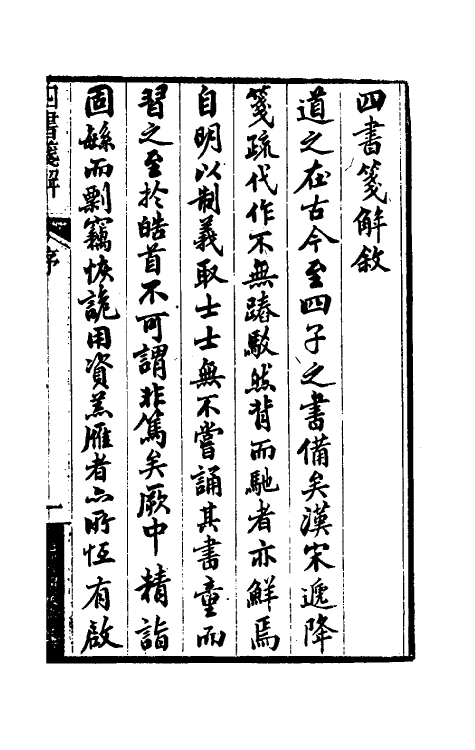 四書箋解敘
道之在古今至四子之書備矣漢宋遞降
箋疏代作不無踳駁然背而馳者亦鮮焉
自明以制義取士士無不嘗誦其書童而
習之至於皓首不可謂非篤矣厥中精詣
固緐而剽竊恢詭用資羔雁者亦所恆有啟
四書箋解
序
一